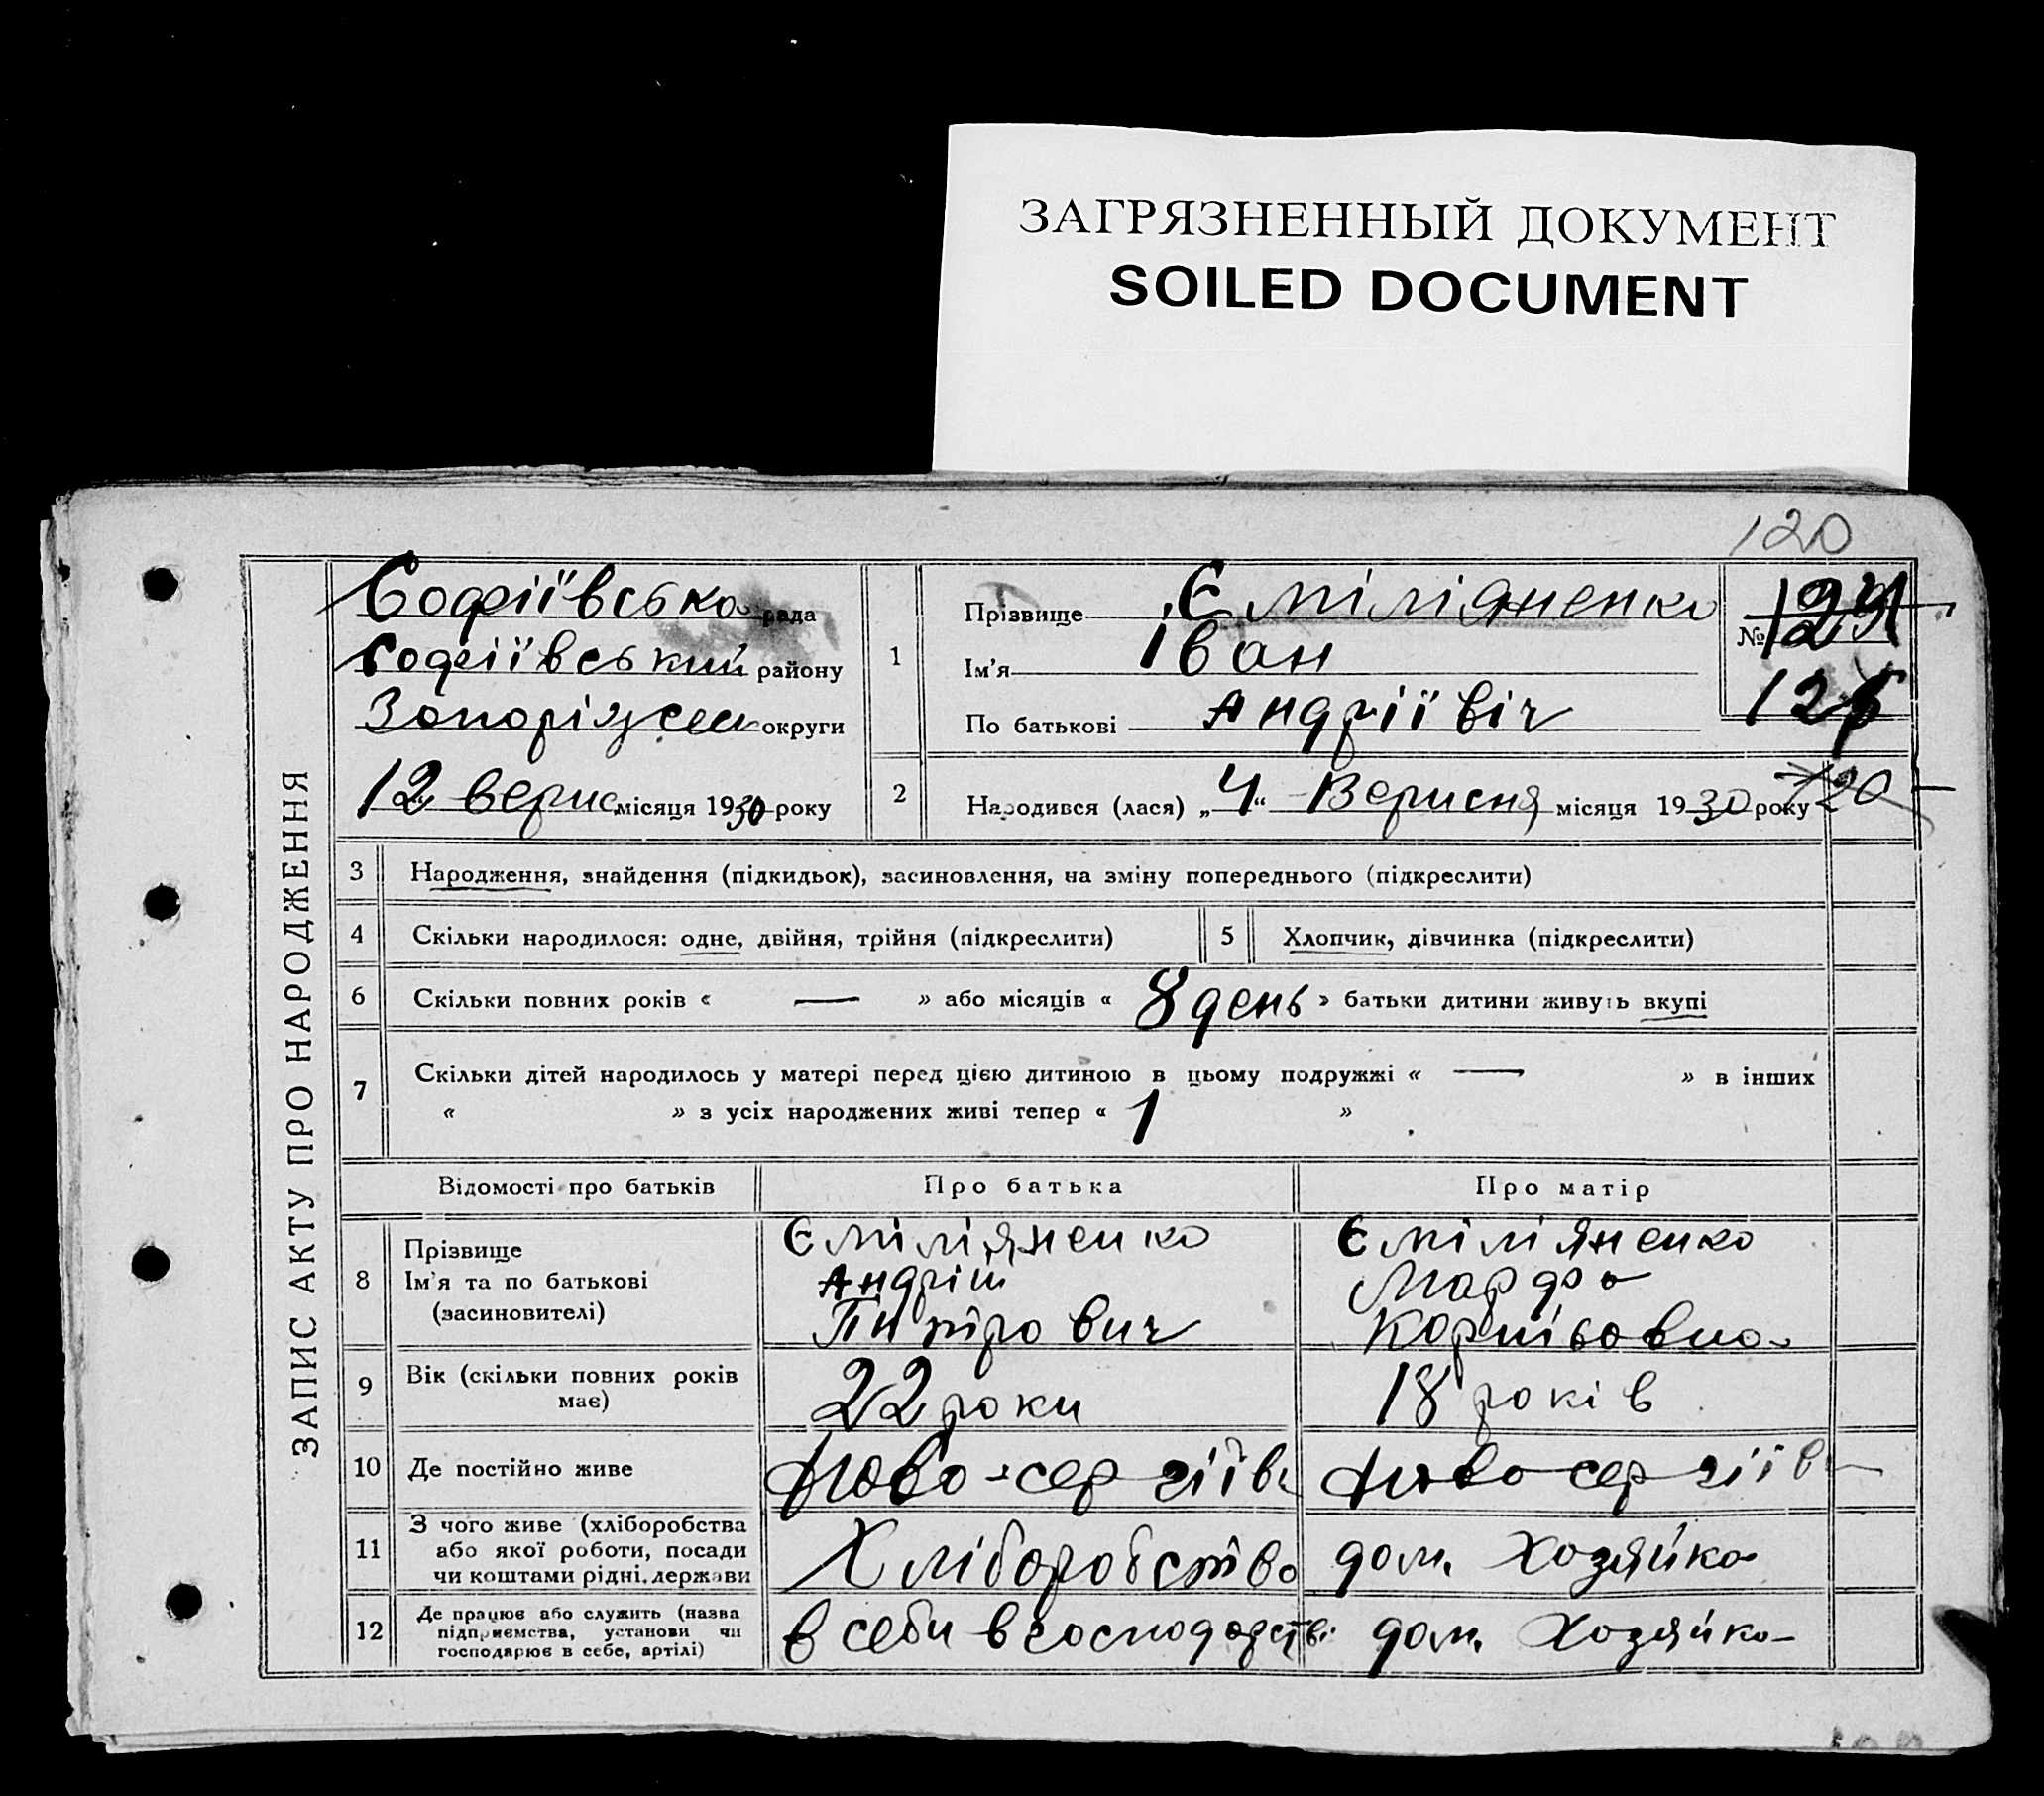 ЗАГРЯЗНЕННЫЙ ДОКУМЕНТ
SOILED DOCUMENT
120
ЗАПИС АКТУ ПРО НАРОДЖЕННЯ
Софіївська рада
Софіївський району
округи
12 верис місяця 1930 року
1
Прізвище Єміліяненко
Ім'я Іван
По батькові Андріївіч
№
2
Народився (лася) „4“ Вересня місяця 1930 року
120
3 Народження, знайдення (підкидьок), засиновлення, на зміну попереднього (підкреслити)
4 Скільки народилося: одне, двійня, трійня (підкреслити)
5 Хлопчик, дівчинка (підкреслити)
6 Скільки повних років « — » або місяців « 8 день » батьки дитини живуть вкупі
7 Скільки дітей народилось у матері перед цією дитиною в цьому подружжі « — » в інших
« » з усіх народжених живі тепер « 1 »
Відомості про батьків
Про батька
Про матір
8
Прізвище
Ім'я та по батькові
(засиновителі)
Єміліяненко
Андрій
Єміліяненко
Марфа
9 Вік (скільки повних років
має)
22 роки
18 років
10 Де постійно живе
Ново-сергіїв
Ново сергіїв
11 З чого живе (хліборобства
або якої роботи, посади
чи коштами рідні, держави
Хліборобство
дом. Хозяйка
12 Де працює або служить (назва
підприємства, установи чи
господарює в себе, артілі)
в себи в господарстві
дом. Хозяйка